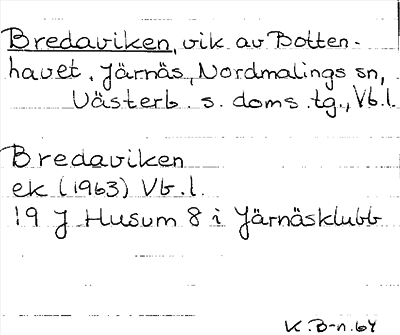 Bredaviken, vik av Botten-
havet, Järnäs, Nordmalings sn,
Västerb. s. doms.tg., Vb.l.
Bredaviken
ek (1963) Vb.l.
19 J Husum 8 i Järnäsklubb
K.B-n.64